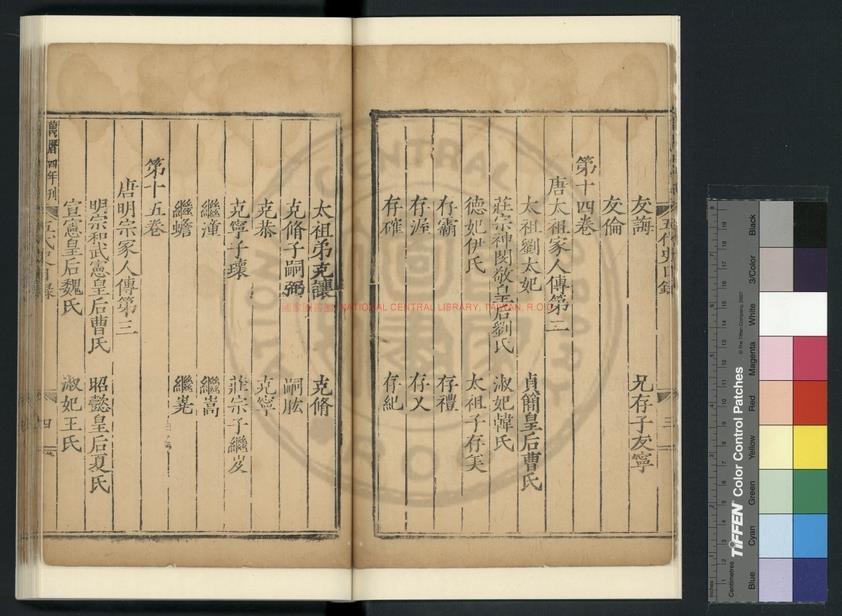 友誨 兄存子友寧
友倫
第十四卷
唐太祖家人傳第二
太祖劉太妃 貞簡皇后曹氏
莊宗神閔敬皇后劉氏 淑妃韓氏
德妃伊氏 太祖子存美
存霸 存禮
存渥 存乂
存確 存紀
太祖弟克讓 克脩
克脩子嗣弼 嗣肱
克恭 克寧
克寧子瓌 莊宗子繼岌
繼潼 繼嵩
繼蟾 繼嶢
第十五卷
唐明宗家人傳第三
明宗和武憲皇后曹氏 昭懿皇后夏氏
宣憲皇后魏氏 淑妃王氏
萬曆四年刊
五代史目錄 四
五代史目錄 三
NATIONAL CENTRAL LIBRARY, TAIWAN, R.O.C
TIFFEN Color Control Patches
© The Tiffen Company, 2007
Centimetres
Inches
Blue
Cyan
Green
Yellow
Red
Magenta
White
3/Color
Black